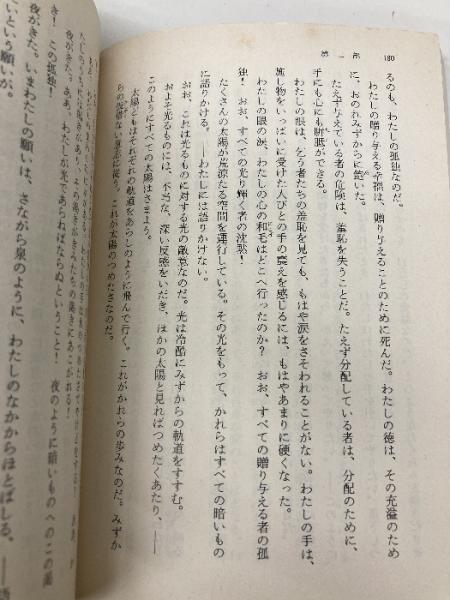 180
第一部
るのも、わたしの孤独なのだ。
わたしの贈り与える幸福は、贈り与えることのために死んだ。わたしの徳は、その充溢のため
に、おのれみずからに飽いた。
たえず与えている者の危険は、羞恥を失うことだ。たえず分配している者は、分配のために、
手にも心にも胼胝ができる。
わたしの眼は、乞う者たちの羞恥を見ても、もはや涙をさそわれることがない。わたしの手は、
施し物をいっぱいに受けた人びとの手の震えを感じるには、もはやあまりに硬くなった。
わたしの眼の涙、わたしの心の和毛はどこへ行ったのか? おお、すべての贈り与える者の孤
独! おお、すべての光り輝く者の沈黙!
たくさんの太陽が荒涼たる空間を運行している。その光をもって、かれらはすべての暗いもの
に語りかける、――わたしには語りかけない。
おお、これは光るものに対する光の敵意なのだ。光は冷酷にみずからの軌道をすすむ。
およそ光るものには、不当な、深い反感をいだき、ほかの太陽と見ればつめたくあたり、――
このようにすべての太陽はさまよう。
太陽どもはそれぞれの軌道をあらしのように飛んで行く。これがかれらの歩みなのだ。みずか
らの仮借ない意志に従う。これが太陽のつめたさなのだ。
夜がきた。ああ、わたしが光であらねばならぬということ! 夜のように暗いものへのこの渇
き! この孤独!
夜がきた。いまわたしの願いは、さながら泉のように、わたしのなかからほとばしる、――語
いという願いが。